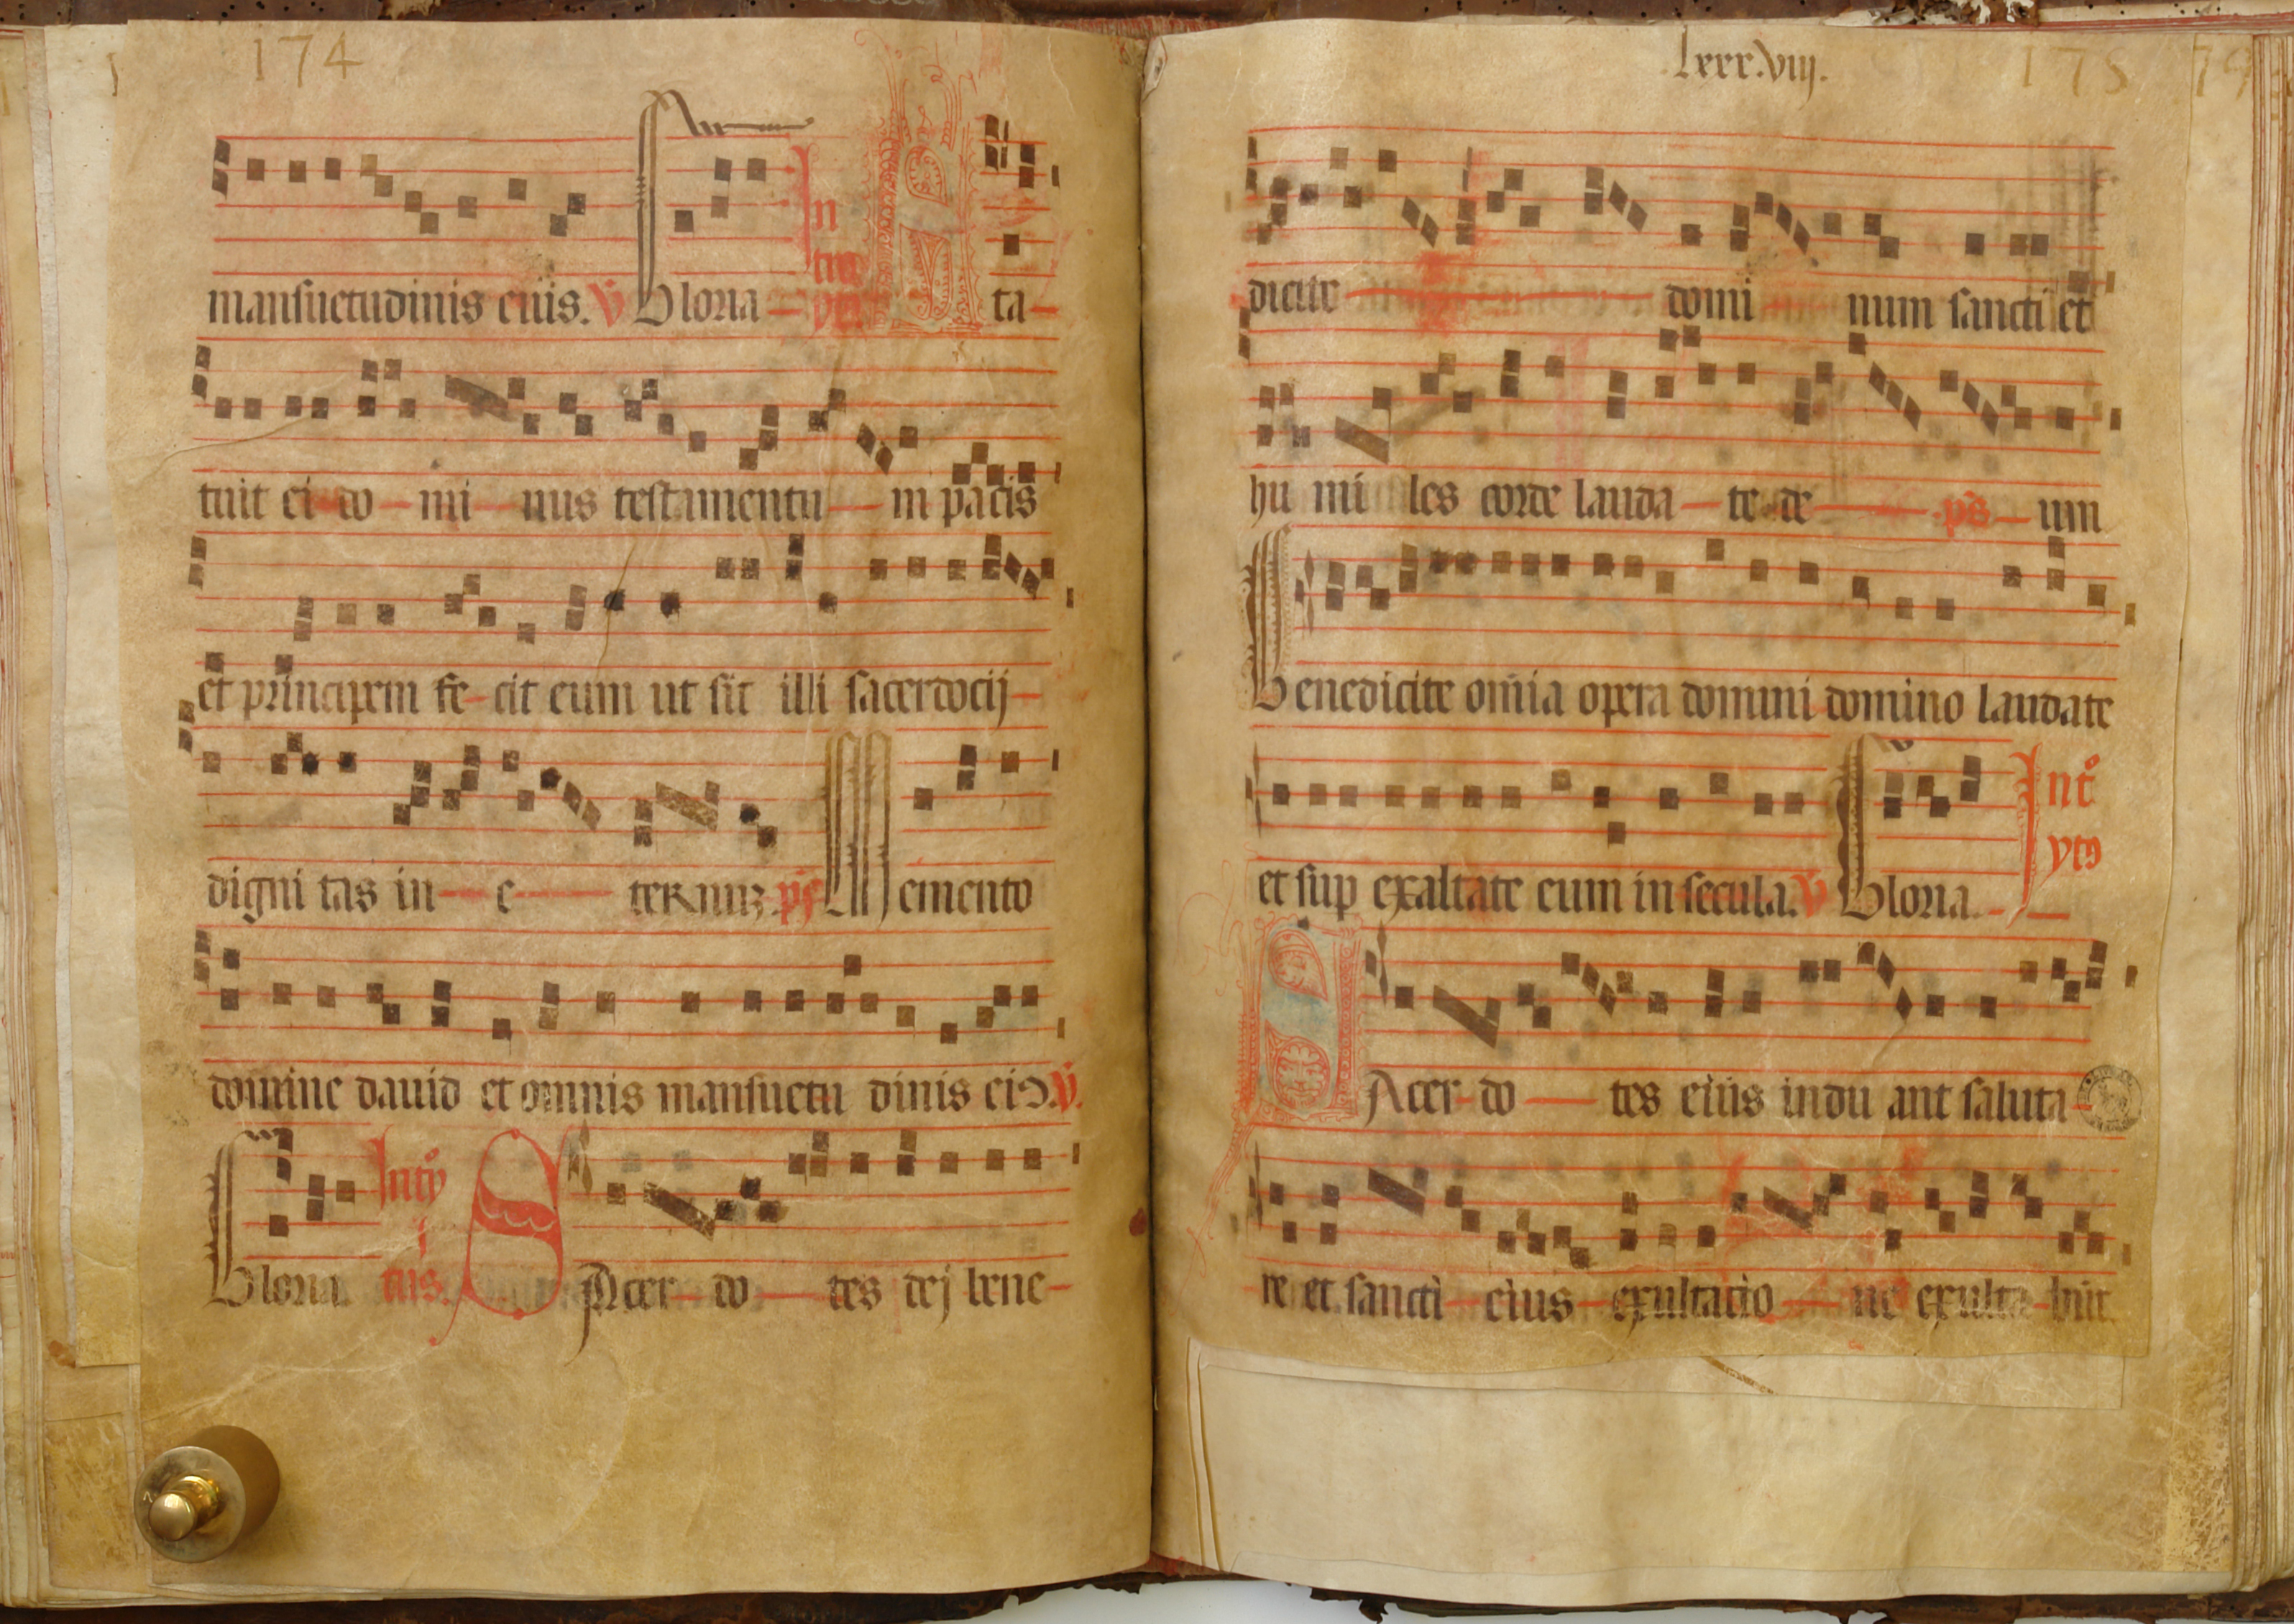 174
mansuetudinis eius. ℣ Gloria — In tro ytꝰ Sta-
tuit ei do - mi - nus testamentu — m pacis
et principem fe - cit eum ut sit illi sacerdocij -
digni tas in — e — ternuꝫ. ps̄ Memento
domine dauid et omnis mansuetu dinis eiꝰ. ℣.
Gloria. Intro i tus. SAcer - do — tes dej bene-
lxxx.viij.
175
dicite — domi num sancti et
hu mi les corde lauda - te de — ps̄ - um
Benedicite om̄ia opera domini domino laudate
et sup exaltate eum in secula. ℣ Gloria. - Int° ytꝰ
SAcer - do — tes eius indu ant saluta -
re et sancti - eius - exultacio — ne exulta - būt.